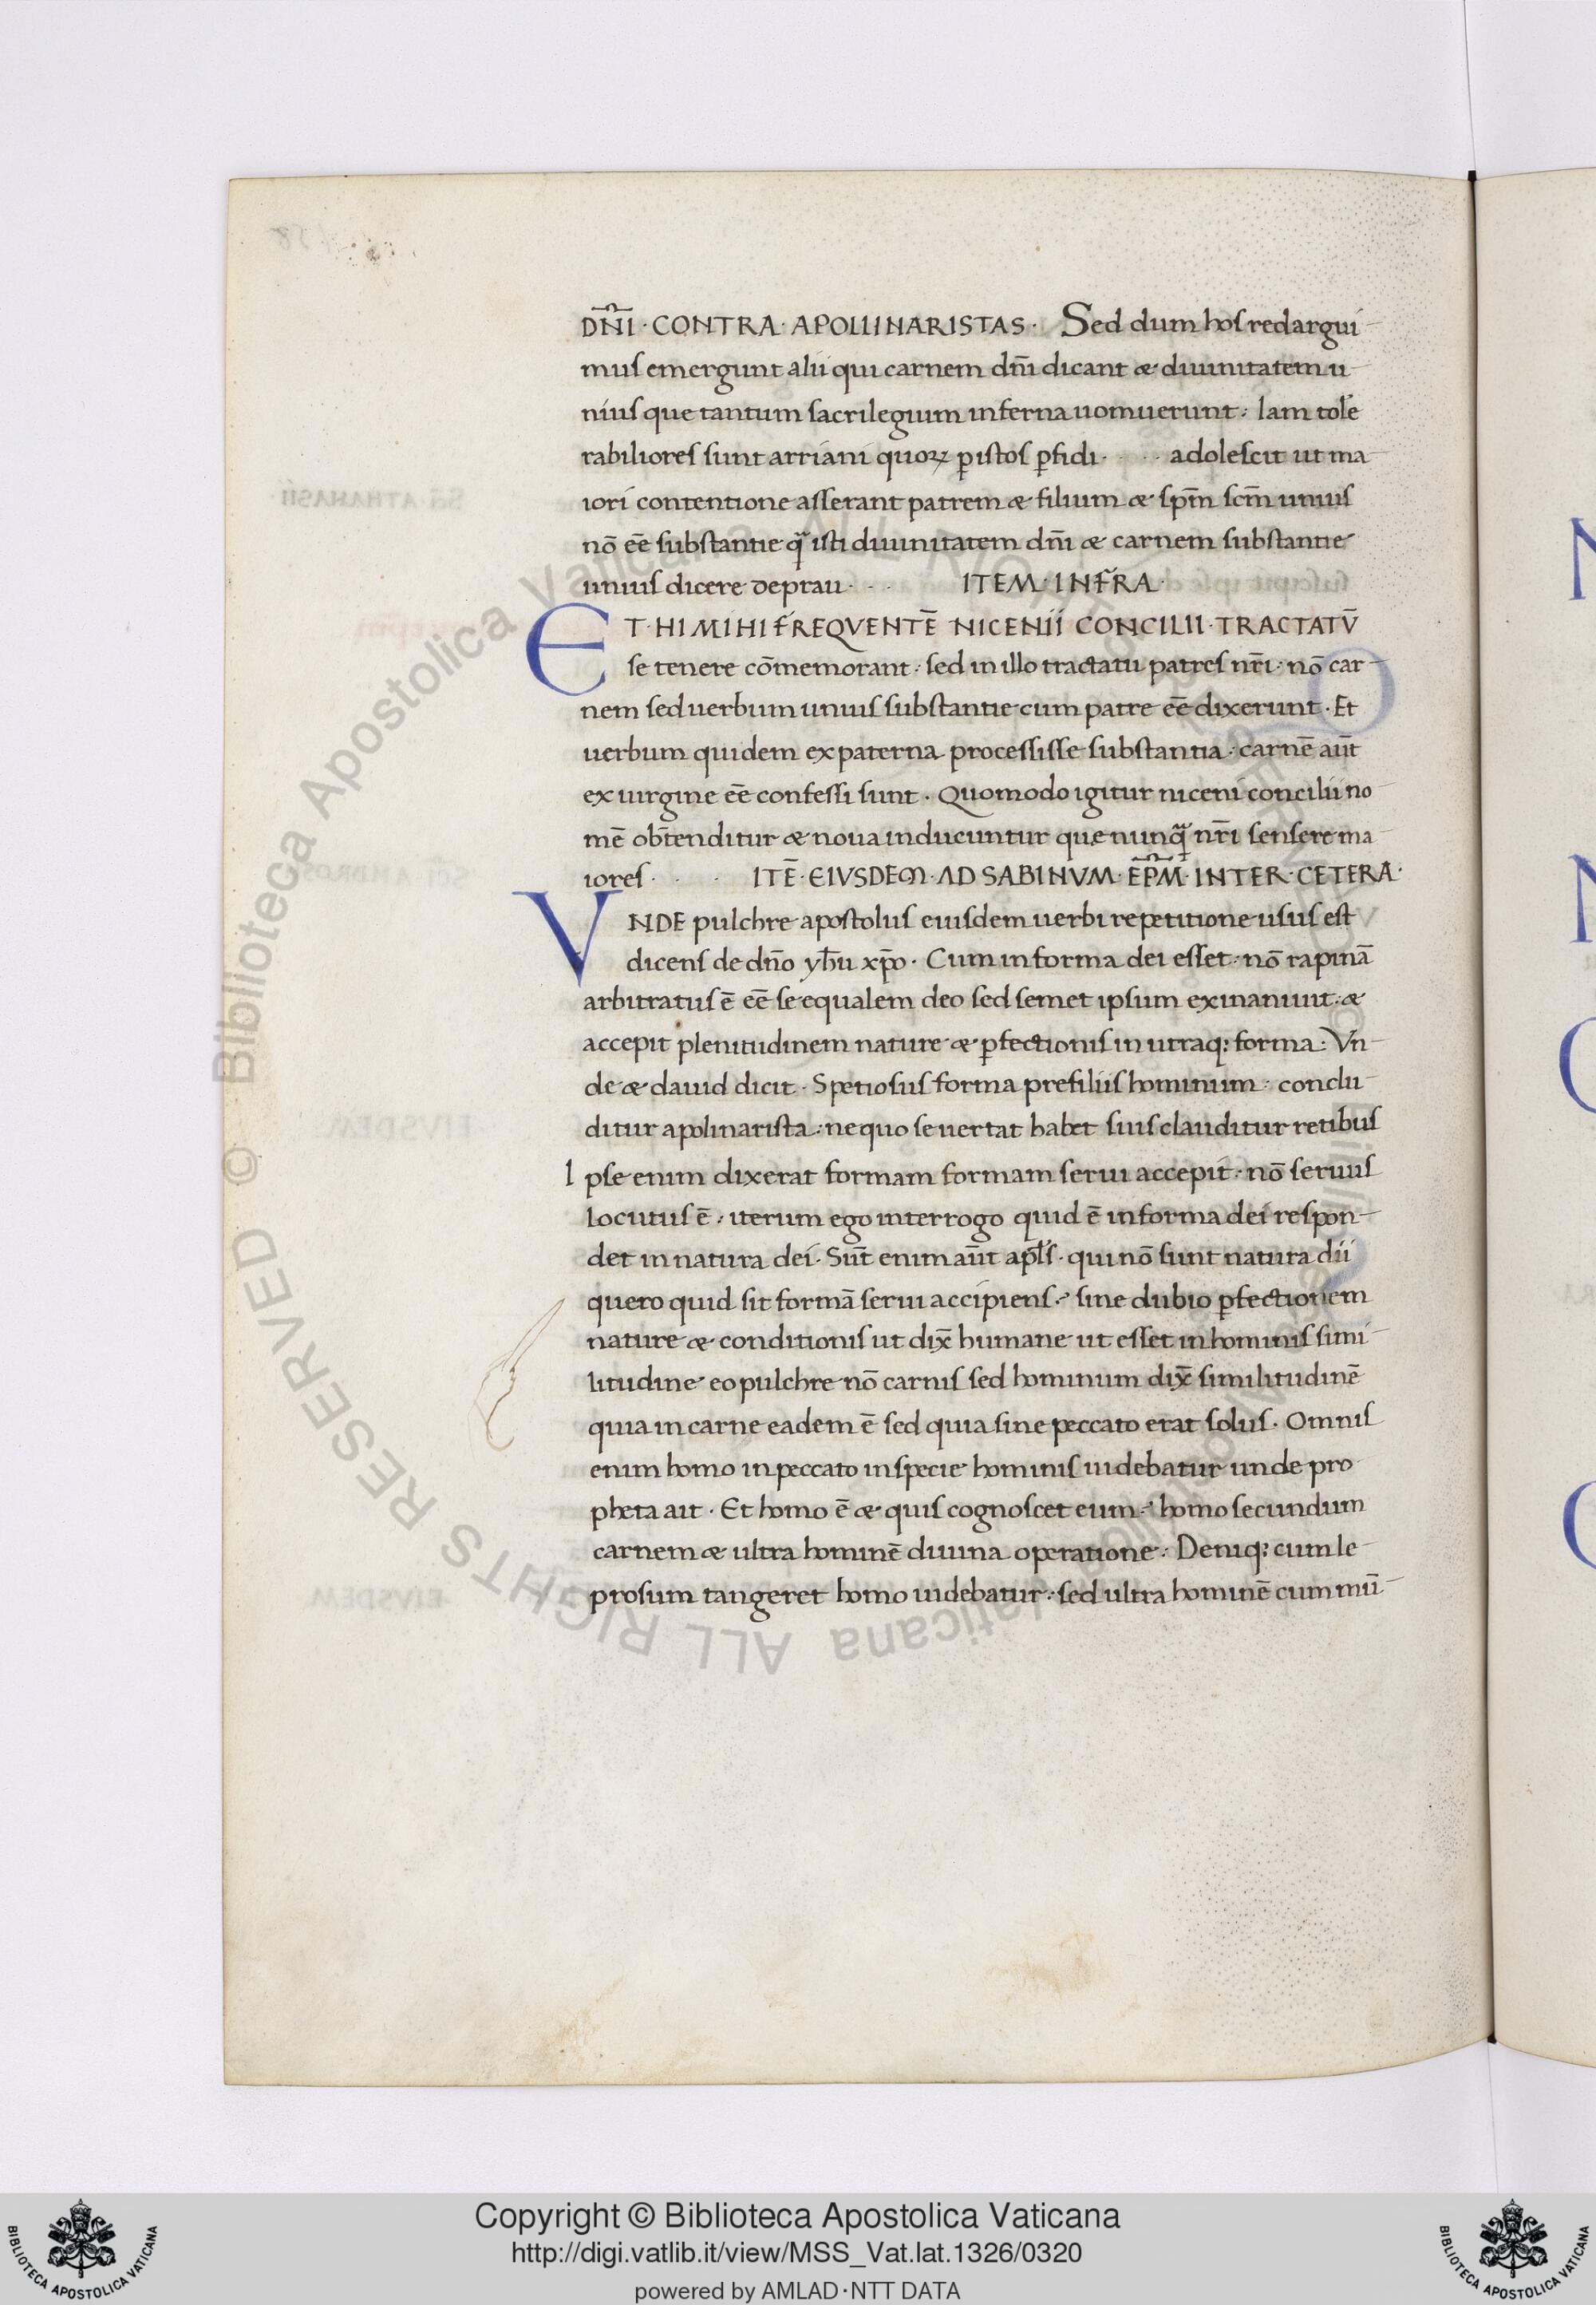 DN̄I · CONTRA · APOLLINARISTAS · Sed dum hos redargui
mus emergunt alii qui carnem dn̄i dicant & diuinitatem u
nius que tantum sacrilegium inferna uomuerunt : Iam tole
rabiliores sunt arriani quoꝝ ꝑ istos ꝑfidi · · · adolescit ut ma
iori contentione asserant patrem & filium & sp̄m sc̄m unius
nō eē substantie q̄ isti diuinitatem dn̄i & carnem substantie
unius dicere deprau · · · ITEM · INFRA ·
ET · HI MIHI FREQVENTĒ NICENII CONCILII · TRACTATV̄
se tenere cōmemorant : sed in illo tractatu patres nr̄i · nō car
nem sed uerbum unius substantie cum patre eē dixerunt · Et
uerbum quidem ex paterna processisse substantia : carnē aūt
ex uirgine eē confessi sunt · Quomodo igitur niceni concilii no
mē obtenditur & noua inducuntur que nunq̄ nr̄i sensere ma
iores · · · ITĒ · EIVSDEM · AD SABINVM · EP̄M · INTER · CETERA ·
VNDE pulchre apostolus eiusdem uerbi repetitione usus est
dicens de dn̄o yh̄u xp̄o · Cum in forma dei esset · nō rapinā
arbitratus ē eē se equalem deo sed semet ipsum exinaniuit : &
accepit plenitudinem nature & ꝑfectionis in utraq; forma : Vn
de & dauid dicit · Spetiosus forma prefiliis hominum : conclu
ditur apolinarista : ne quo se uertat habet suis clauditur retibus
Ipse enim dixerat formam formam serui accepit : nō seruus
locutus ē : iterum ego interrogo quid ē in forma dei respon
det in natura dei · Sūt enim aūt apl̄s · qui nō sunt natura dii
quero quid sit formā serui accipiens : sine dubio ꝑfectionem
nature & conditionis ut dix̄ humane ut esset in hominis simi
litudine eo pulchre nō carnis sed hominum dix̄ similitudinē
quia in carne eadem ē sed quia sine peccato erat solus · Omnis
enim homo in peccato in specie hominis uidebatur unde pro
pheta ait · Et homo ē & quis cognoscet eum : homo secundum
carnem & ultra hominē diuina operatione : Deniq; cum le
prosum tangeret homo uidebatur : sed ultra hominē cum mū
Copyright © Biblioteca Apostolica Vaticana
http://digi.vatlib.it/view/MSS_Vat.lat.1326/0320
powered by AMLAD·NTT DATA
BIBLIOTECA APOSTOLICA VATICANA
BIBLIOTECA APOSTOLICA VATICANA
© Biblioteca Apostolica Vaticana ALL RIGHTS RESERVED